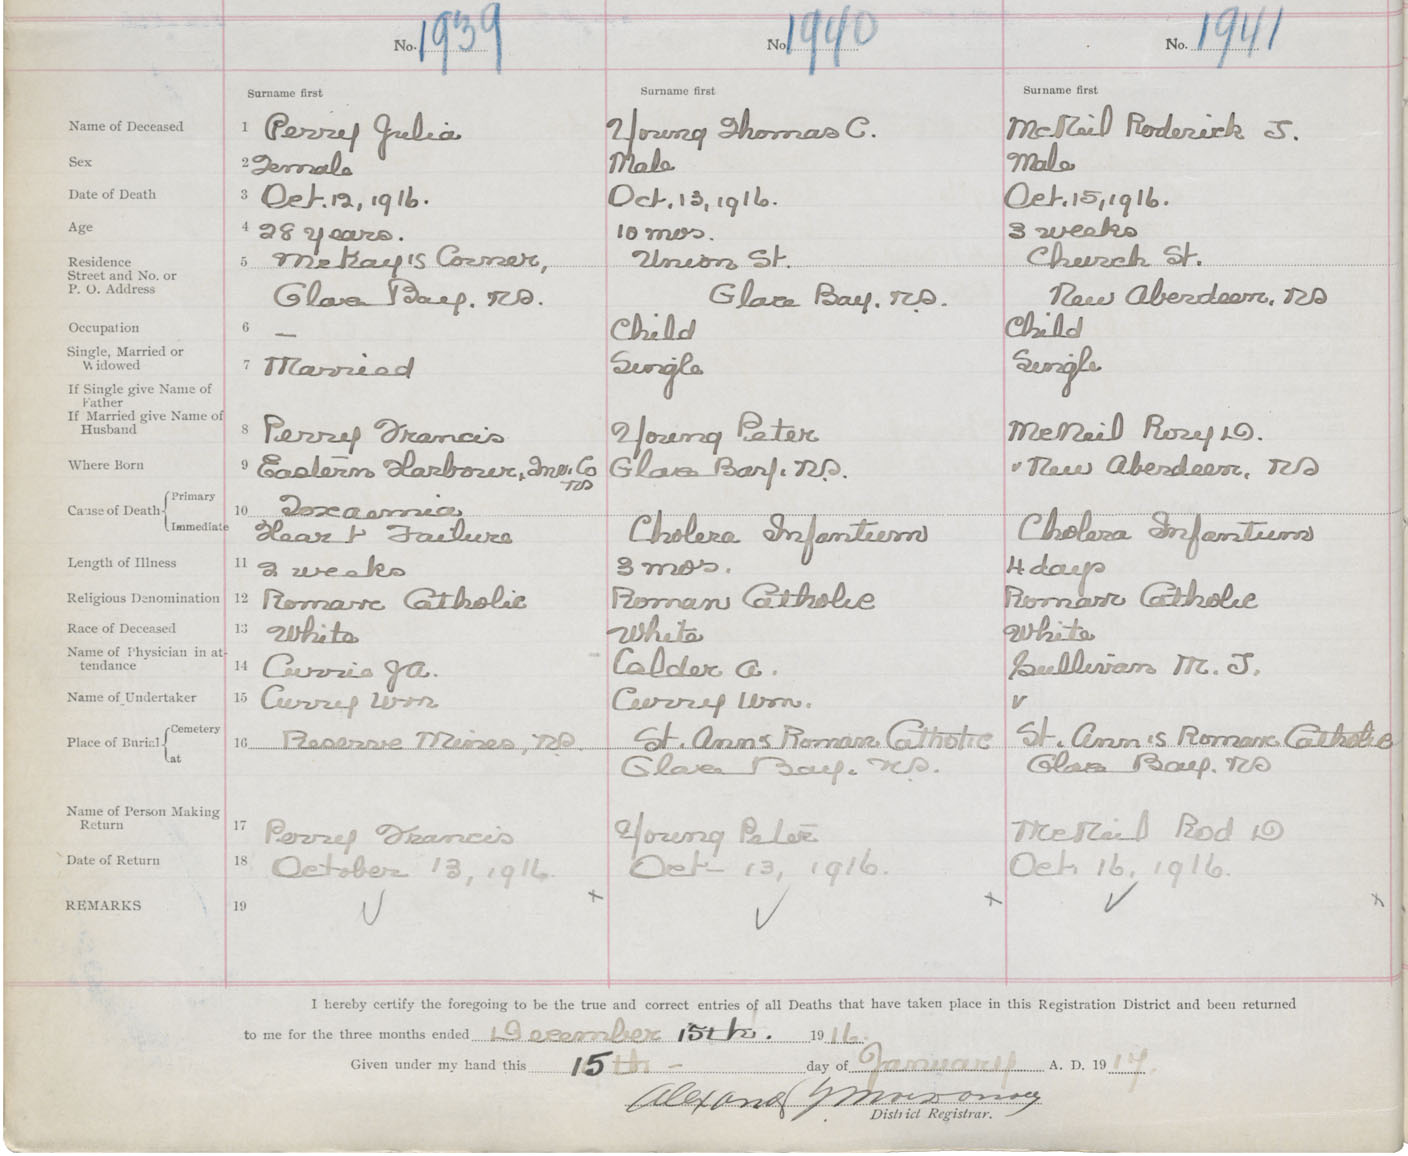 No. 1939 No. 1940 No. 1941
Surname first Surname first Surname first
Name of Deceased 1 Perry Julia Young Thomas C. McNeil Roderick J.
Sex 2 Female Male Male
Date of Death 3 Oct. 12, 1916. Oct. 13, 1916. Oct. 15, 1916.
Age 4 28 years. 10 mos. 3 weeks
Residence 5 McKay's Corner, Union St. Church St.
Street and No. or
P. O. Address Glace Bay. N.S. Glace Bay. N.S. New Aberdeen, NS
Occupation 6 — Child Child
Single, Married or
Widowed 7 Married Single Single
If Single give Name of
Father
If Married give Name of
Husband 8 Perry Francis Young Peter McNeil Rory D.
Where Born 9 Eastern Harbour, Inv. Co NS Glace Bay. N.S. New Aberdeen, NS
Cause of Death Primary 10 Toxaemia
Immediate Heart Failure Cholera Infantum Cholera Infantum
Length of Illness 11 2 weeks 3 mos. 4 days
Religious Denomination 12 Roman Catholic Roman Catholic Roman Catholic
Race of Deceased 13 White White White
Name of Physician in at-
tendance 14 Currie JA. Calder A. Sullivan M. J.
Name of Undertaker 15 Curry Wm Curry Wm.
Place of Burial Cemetery 16 Reserve Mines, N.S. St. Ann's Roman Catholic St. Ann's Roman Catholic
at Glace Bay. N.S. Glace Bay. NS
Name of Person Making
Return 17 Perry Francis Young Peter McNeil Rod D
Date of Return 18 October 13, 1916. Oct- 13, 1916. Oct. 16, 1916.
REMARKS 19
I hereby certify the foregoing to be the true and correct entries of all Deaths that have taken place in this Registration District and been returned
to me for the three months ended December 15th. 1916.
Given under my hand this 15th - day of January A. D. 1917.
District Registrar.